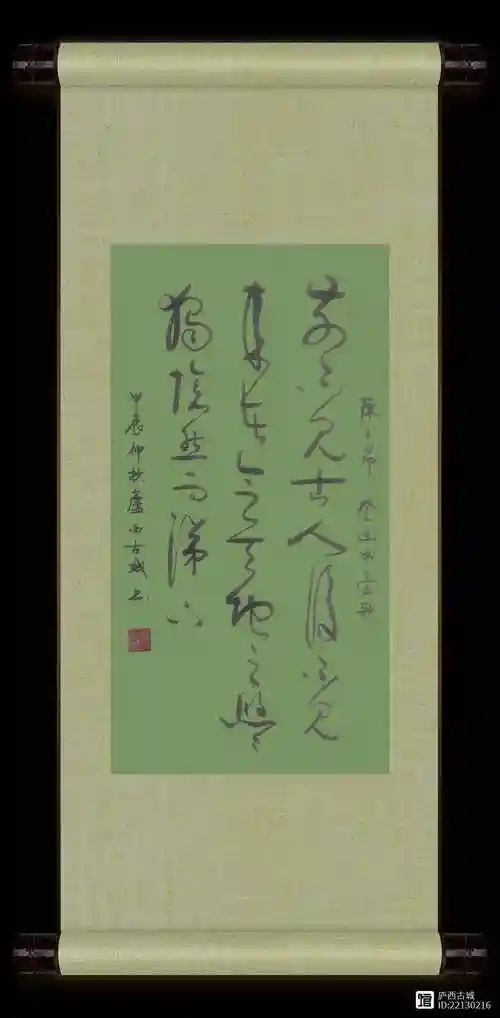 陈子昂 登幽州台歌
前不见古人後不见
来者念天地之悠悠
獨怆然而涕下
甲辰仲秋廬西古城书
庐西古城
ID:22130216